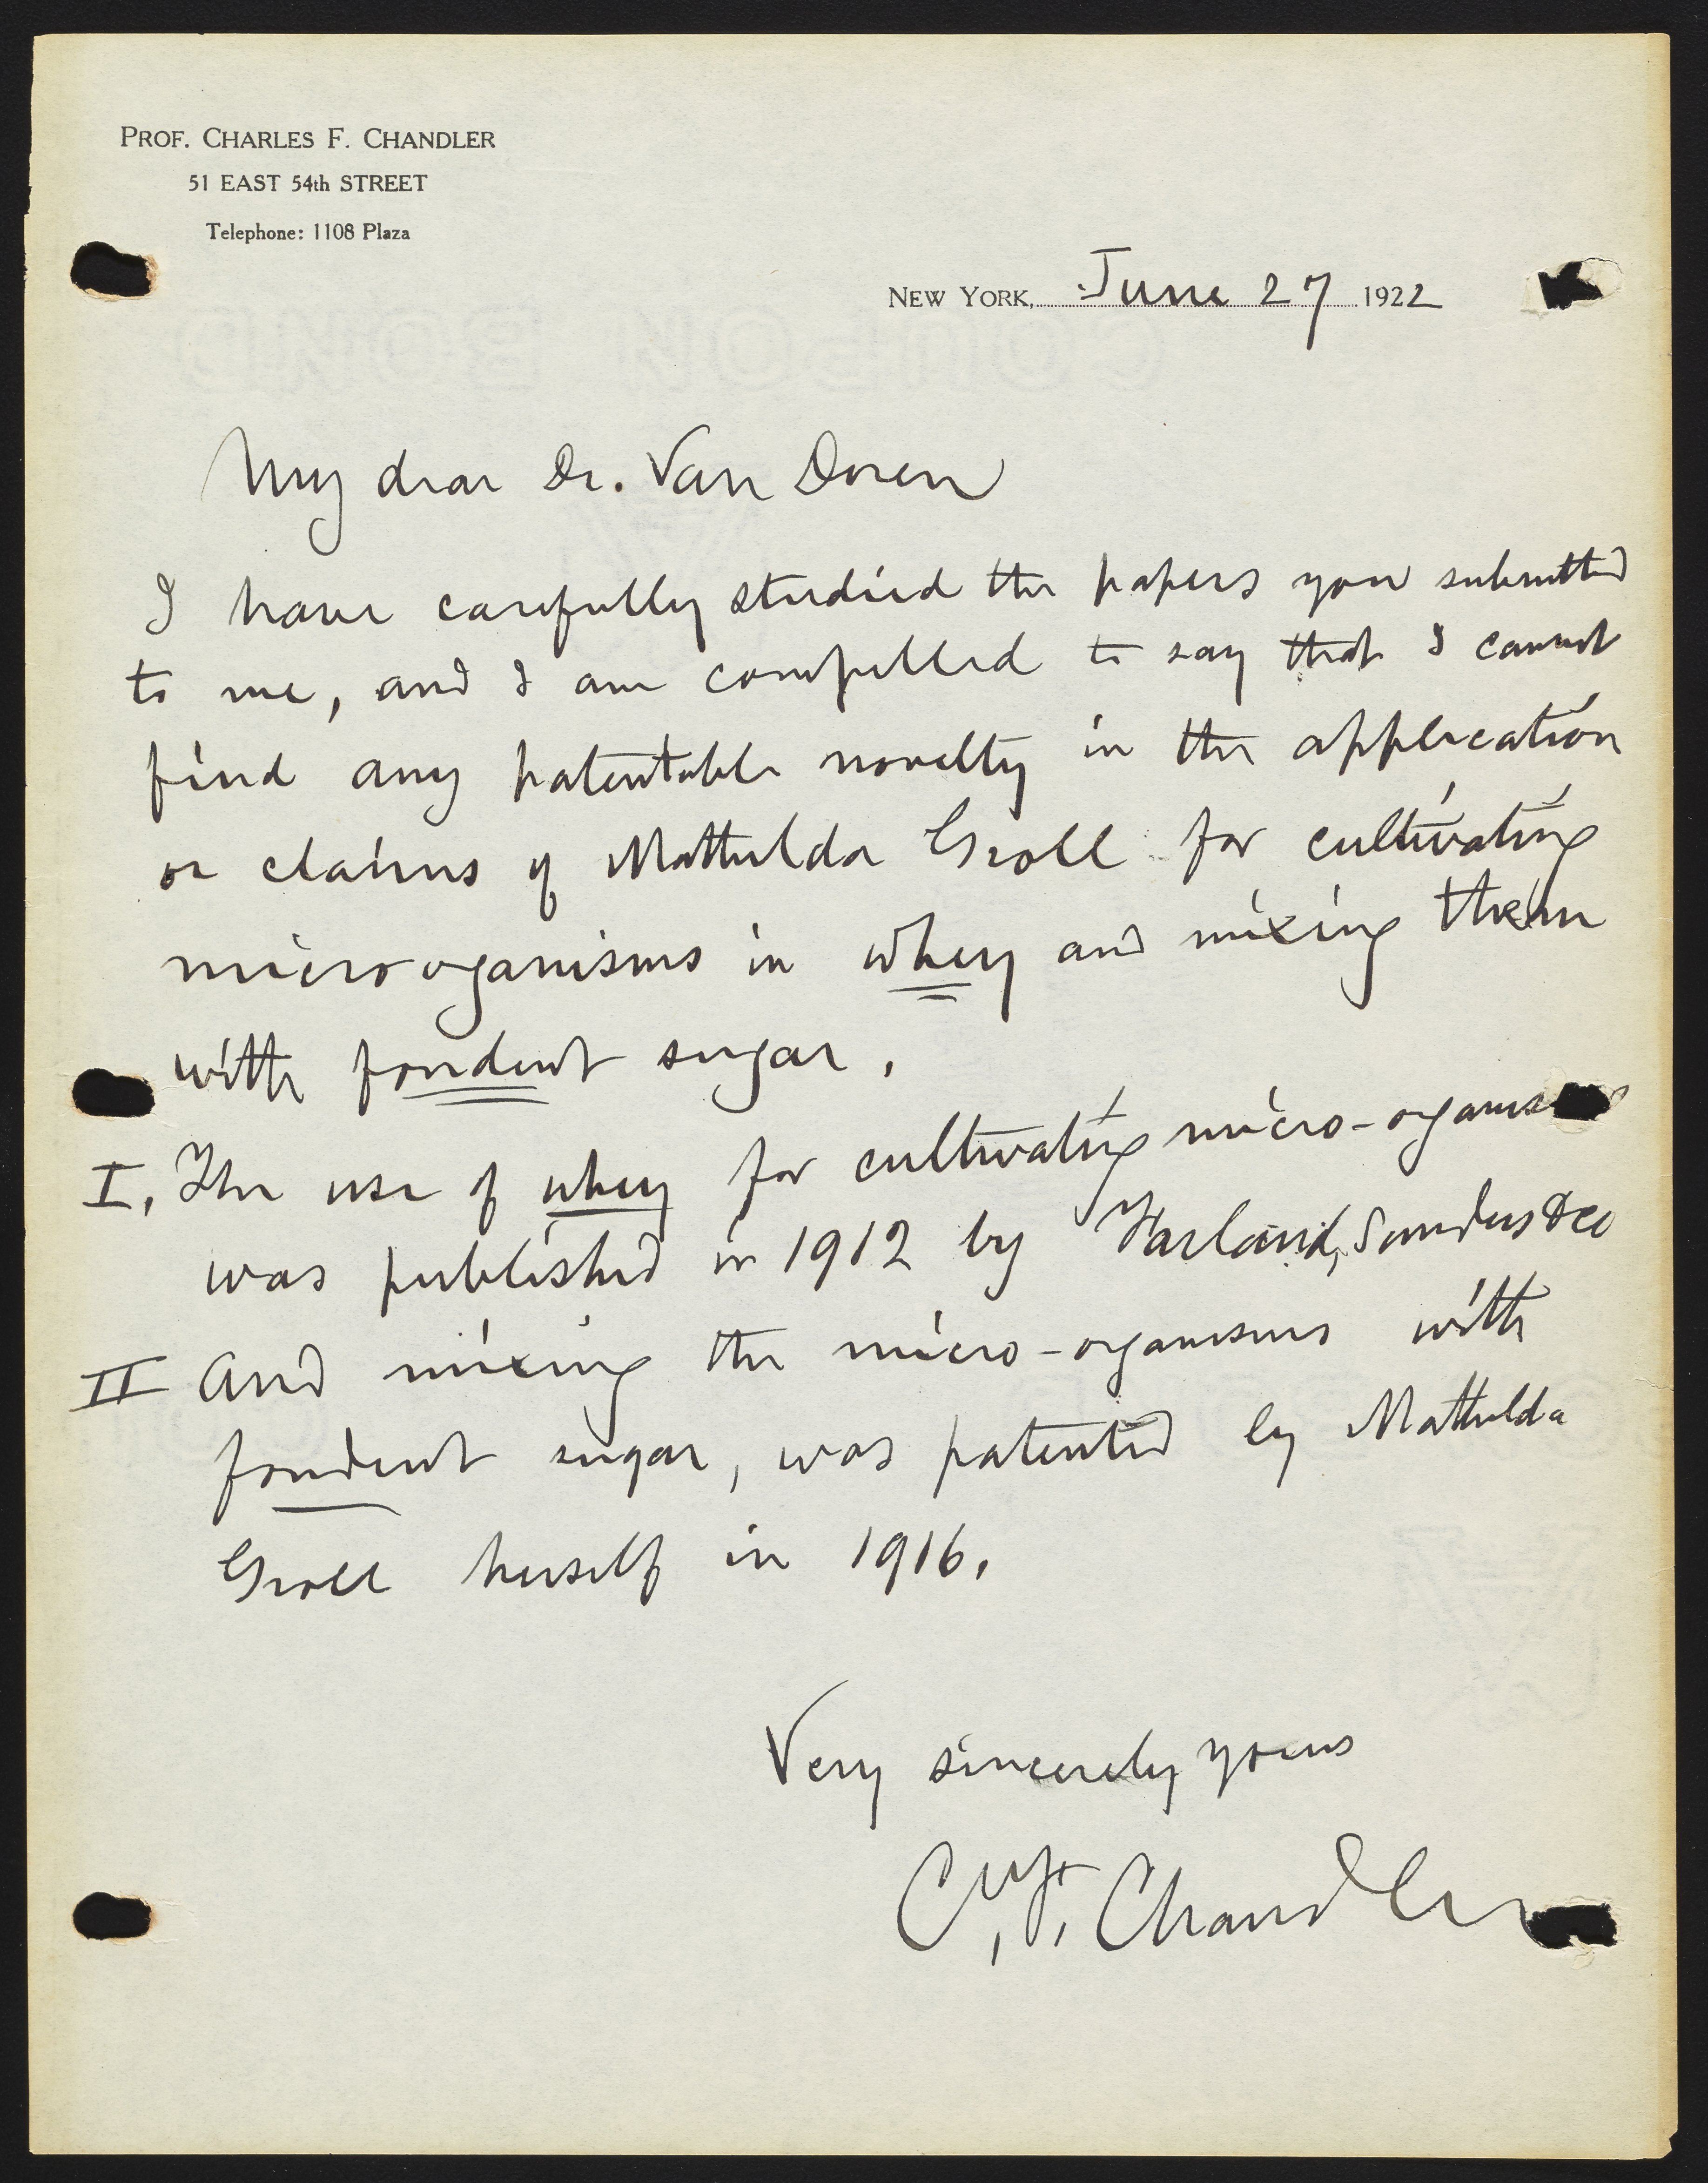 PROF. CHARLES F. CHANDLER
51 EAST 54th STREET
Telephone: 1108 Plaza
NEW YORK, June 27 1922
My dear Dr. Van Doren
I have carefully studied the papers you submitted
to me, and I am compelled to say that I cannot
find any patentable novelty in the application
or claims of Mathilda Groll for cultivating
microorganisms in whey and mixing them
with fondent sugar.
I, The use of whey for cultivating micro-organisms
was published in 1912 by
II And mixing the micro-organisms with
fondent sugar, was patented by Mathilda
Groll herself in 1916.
Very sincerely yours
C, F, Chandler